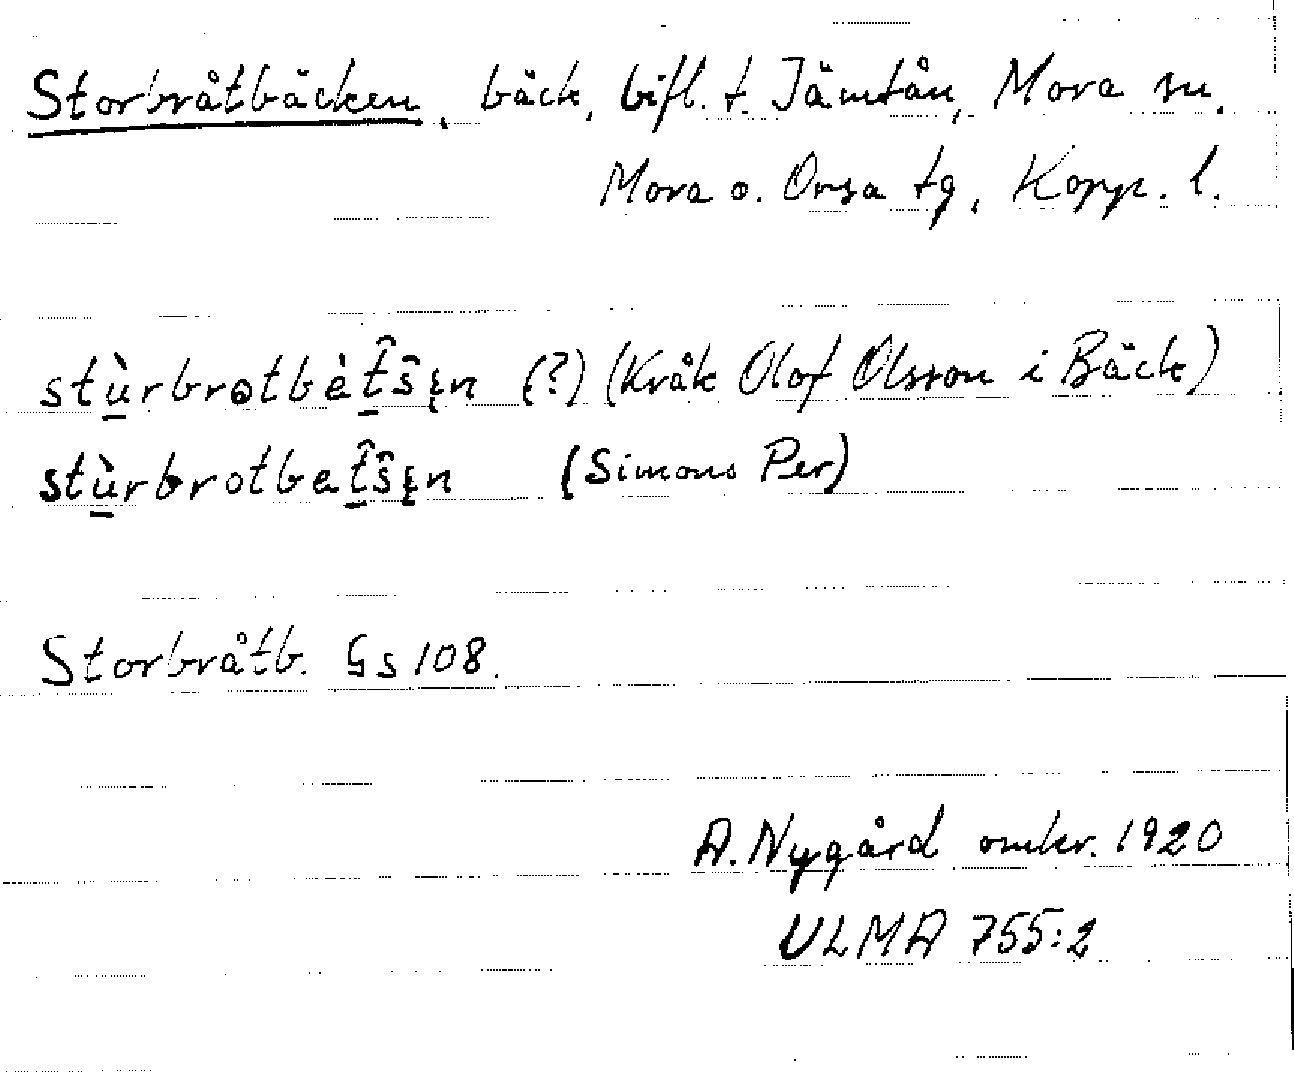 Storbråtbäcken, bäck, bifl. t. Jämtån, Mora sn.
Mora o. Orsa tg, Kopp. l.
stù̱rbrotbèṯ̂ŝᶒn (?) (Kråk Olof Olsson i Bäck)
stù̱rbrotbeṯ̂ŝᶒn (Simons Per)
Storbråtb. Gs 108.
A. Nygård omkr. 1920
ULMA 755:2